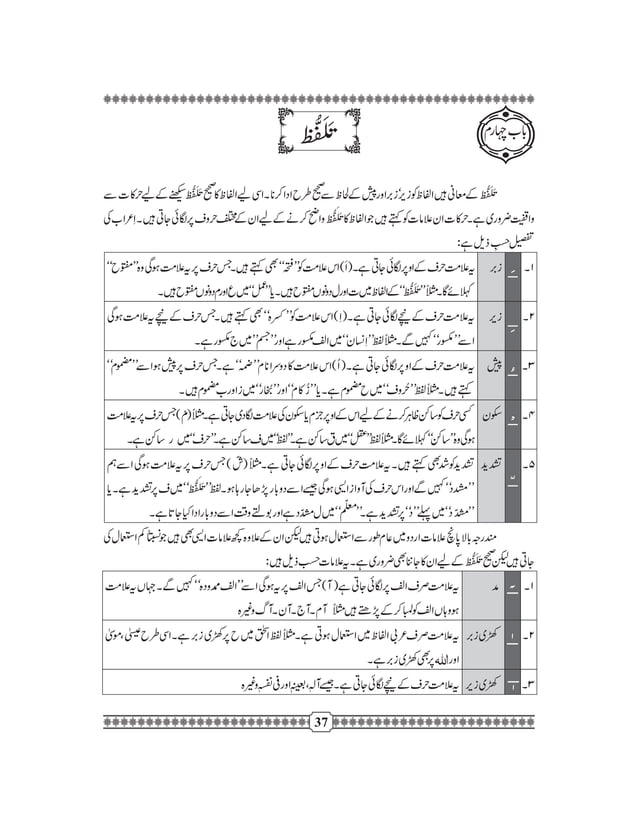 باب چہارم
تَلَفُّظ
تَلَفُّظ کے معانی ہیں الفاظ کو زیر، زبر اور پیش کے لحاظ سے صحیح طرح ادا کرنا۔ اسی لیے الفاظ کا صحیح تَلَفُّظ سیکھنے کے لیے حرکات سے
واقفیت ضروری ہے۔ حرکات ان علامات کو کہتے ہیں جو الفاظ کا تَلَفُّظ واضح کرنے کے لیے ان کے مختلف حروف پر لگائی جاتی ہیں۔ اِعراب کی
تفصیل حسبِ ذیل ہے:
۱۔ زبر یہ علامت حرف کے اوپر لگائی جاتی ہے۔ (اَ) اس علامت کو ’’فتحہ‘‘ بھی کہتے ہیں۔ جس حرف پر یہ علامت ہوگی وہ ’’مفتوح‘‘
کہلائے گا۔ مثلاً ’’تَلَفُّظ‘‘ کے الفاظ میں ت اور ل دونوں مفتوح ہیں۔ یا ’’عَمَل‘‘ میں ع اور م دونوں مفتوح ہیں۔
۲۔ زیر یہ علامت حرف کے نیچے لگائی جاتی ہے۔ (اِ) اس علامت کو ’’کسرہ‘‘ بھی کہتے ہیں۔ جس حرف کے نیچے یہ علامت ہوگی
اسے ’’مکسور‘‘ کہیں گے۔ مثلاً لفظ ’’اِنسان‘‘ میں الف مکسور ہے اور ’’جِسم‘‘ میں ج مکسور ہے۔
۳۔ پیش یہ علامت حرف کے اوپر لگائی جاتی ہے۔ (اُ) اس علامت کا دوسرا نام ’’ضمہ‘‘ ہے۔ جس حرف پر پیش ہو اسے ’’مضموم‘‘
کہتے ہیں۔ مثلاً لفظ ’’حُروف‘‘ میں ح مضموم ہے۔ یا ’’زُکام‘‘ اور ’’بُخار‘‘ میں ز اور ب مضموم ہیں۔
۴۔ سکون کسی حرف کو ساکن ظاہر کرنے کے لیے اس کے اوپر جزم یا سکون کی علامت لگا دی جاتی ہے۔ مثلاً (مْ) جس حرف پر یہ علامت
ہوگی وہ ’’ساکن‘‘ کہلائے گا۔ مثلاً لفظ ’’عقْل‘‘ میں ق ساکن ہے۔ ’’لفْظ‘‘ میں ف ساکن ہے۔ ’’حرْف‘‘ میں ر ساکن ہے۔
۵۔ تشدید تشدید کو شد بھی کہتے ہیں۔ یہ علامت حرف کے اوپر لگائی جاتی ہے۔ مثلاً (شّ) جس حرف پر یہ علامت ہوگی اسے ہم
’’مشدد‘‘ کہیں گے اور اس حرف کی آواز ایسی ہوگی جیسے اسے دو بار پڑھا جا رہا ہو۔ لفظ ’’تَلَفُّظ‘‘ میں ف پر تشدید ہے۔ یا
’’مشدّد‘‘ میں پہلے ’’د‘‘ پر تشدید ہے۔ ’’معلّم‘‘ میں ل مشدّد ہے اور بولتے وقت اسے دوبار ادا کیا جاتا ہے۔
مندرجہ بالا پانچ علامات اردو میں عام طور سے استعمال ہوتی ہیں لیکن ان کے علاوہ کچھ علامات ایسی بھی ہیں جو نسبتاً کم استعمال کی
جاتی ہیں لیکن صحیح تَلَفُّظ کے لیے ان کا جاننا بھی ضروری ہے۔ یہ علامات حسب ذیل ہیں:
۱۔ مد یہ علامت صرف الف پر لگائی جاتی ہے (آ) جس الف پر یہ ہوگی اسے ’’الف ممدودہ‘‘ کہیں گے۔ جہاں یہ علامت
ہو وہاں الف کو لمبا کرکے پڑھتے ہیں مثلاً آم۔ آج۔ آن۔ آگ وغیرہ
۲۔ کھڑی زبر یہ علامت صرف عربی الفاظ میں استعمال ہوتی ہے۔ مثلاً لفظ اسحٰق میں ح پر کھڑی زبر ہے۔ اسی طرح عیسٰی، موسٰی
اور اللہ پر بھی کھڑی زبر ہے۔
۳۔ کھڑی زیر یہ علامت حرف کے نیچے لگائی جاتی ہے۔ جیسے آلہٖ، بعینہٖ اور فی نفسہٖ وغیرہ
37